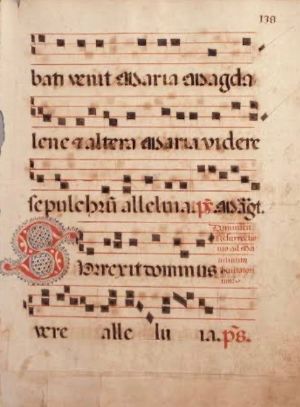 138
bati venit Maria Magda
lene ⁊ altera Maria videre
sepulchrũ alleluia. p̃s. Mag̃t.
Resurrectio
nis ad Ma
Surrexit dominus
vere alle lu ia. p̃s.